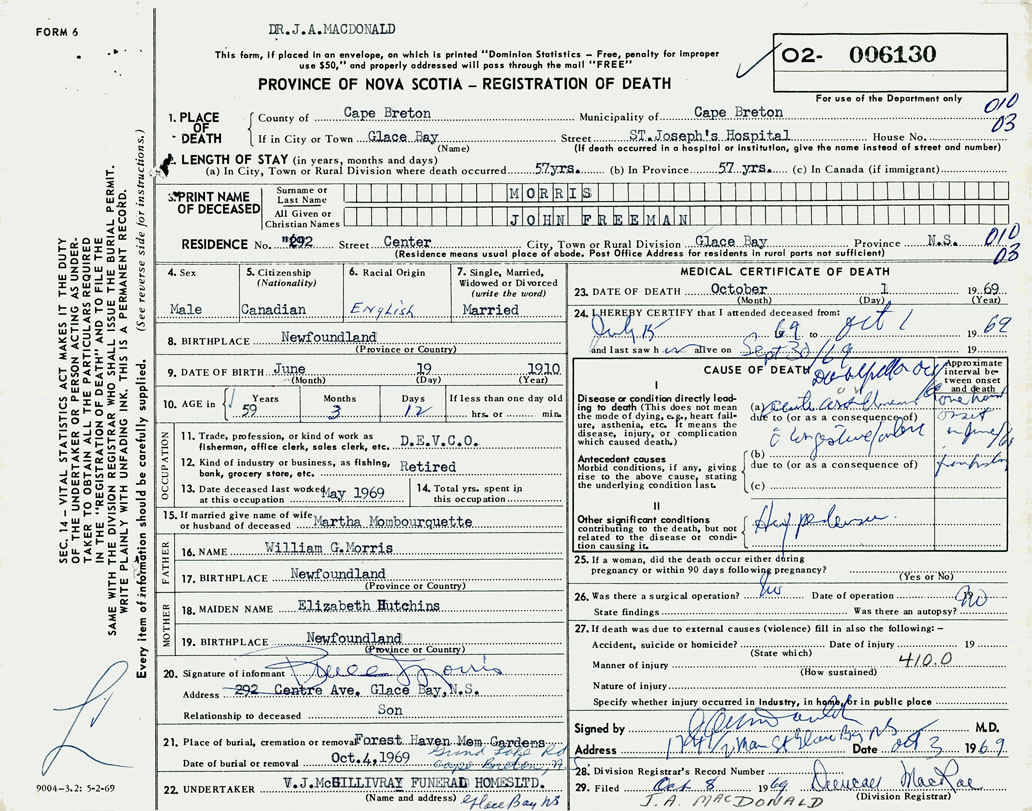 FORM 6
DR.J.A.MACDONALD
This form, if placed in an envelope, on which is printed "Dominion Statistics – Free, penalty for improper
use $50," and properly addressed will pass through the mail "FREE"
PROVINCE OF NOVA SCOTIA – REGISTRATION OF DEATH
02- 006130
For use of the Department only
010
03
1. PLACE OF DEATH
County of Cape Breton Municipality of Cape Breton
If in City or Town Glace Bay Street ST.Joseph's Hospital House No.
(Name) (If death occurred in a hospital or institution, give the name instead of street and number)
2. LENGTH OF STAY (in years, months and days)
(a) In City, Town or Rural Division where death occurred 57yrs. (b) In Province 57 yrs. (c) In Canada (if immigrant)
3. PRINT NAME OF DECEASED
Surname or Last Name MORRIS
All Given or Christian Names JOHN FREEMAN
RESIDENCE No. 292 Street Center City, Town or Rural Division Glace Bay Province N.S. 010
03
(Residence means usual place of abode. Post Office Address for residents in rural parts not sufficient)
4. Sex
Male
5. Citizenship
(Nationality)
Canadian
6. Racial Origin
English
7. Single, Married,
Widowed or Divorced
(write the word)
Married
8. BIRTHPLACE Newfoundland
(Province or Country)
9. DATE OF BIRTH June 19 1910
(Month) (Day) (Year)
10. AGE in
Years 59
Months 3
Days 12
If less than one day old
hrs. or min.
OCCUPATION
11. Trade, profession, or kind of work as
fisherman, office clerk, sales clerk, etc. D.E.V.C.O.
12. Kind of industry or business, as fishing,
bank, grocery store, etc. Retired
13. Date deceased last worked
at this occupation May 1969
14. Total yrs. spent in
this occupation
15. If married give name of wife
or husband of deceased Martha Mombourquette
FATHER
16. NAME William G.Morris
17. BIRTHPLACE Newfoundland
(Province or Country)
MOTHER
18. MAIDEN NAME Elizabeth Hutchins
19. BIRTHPLACE Newfoundland
(Province or Country)
20. Signature of informant Morris
Address 292 Centre Ave. Glace Bay,N.S.
Relationship to deceased Son
21. Place of burial, cremation or removal Forest Haven Mem Gardens
Grand Lake Rd
Date of burial or removal Oct.4,1969
Cape Breton,
22. UNDERTAKER V.J.McGILLIVRAY FUNERAL HOMESLTD.
(Name and address) Glace Bay NS
MEDICAL CERTIFICATE OF DEATH
23. DATE OF DEATH October 1 19 69
(Month) (Day) (Year)
24. I HEREBY CERTIFY that I attended deceased from:
July 15 69 to Oct 1 19 69
and last saw h im alive on Sept 30/69 19
CAUSE OF DEATH
Approximate
interval be-
tween onset
and death
I
Disease or condition directly lead-
ing to death (This does not mean
the mode of dying, e.g., heart fail-
ure, asthenia, etc. It means the
disease, injury, or complication
which caused death.)
(a) acute
due to (or as a consequence of)
congestive
Antecedent causes
Morbid conditions, if any, giving
rise to the above cause, stating
the underlying condition last.
(b)
due to (or as a consequence of)
(c)
II
Other significant conditions
contributing to the death, but not
related to the disease or condi-
tion causing it.
25. If a woman, did the death occur either during
pregnancy or within 90 days following pregnancy?
(Yes or No)
26. Was there a surgical operation? No Date of operation 19
State findings Was there an autopsy? No
27. If death was due to external causes (violence) fill in also the following: –
Accident, suicide or homicide? Date of injury 19
(State which)
Manner of injury 410.0
(How sustained)
Nature of injury
Specify whether injury occurred in Industry, in home, or in public place
Signed by M.D.
Address Main St Glace Bay NS Date Oct 3 1969
28. Division Registrar's Record Number
29. Filed Oct 8 1969 Duncan MacRae
(Division Registrar)
J.A. MACDONALD
SEC. 14 – VITAL STATISTICS ACT MAKES IT THE DUTY
OF THE UNDERTAKER OR PERSON ACTING AS UNDER-
TAKER TO OBTAIN ALL THE PARTICULARS REQUIRED
IN THE "REGISTRATION OF DEATH" AND TO FILE THE
SAME WITH THE DIVISION REGISTRAR WHO SHALL ISSUE THE BURIAL PERMIT.
WRITE PLAINLY WITH UNFADING INK. THIS IS A PERMANENT RECORD.
Every item of information should be carefully supplied. (See reverse side for instructions.)
9004–3.2: 5-2-69